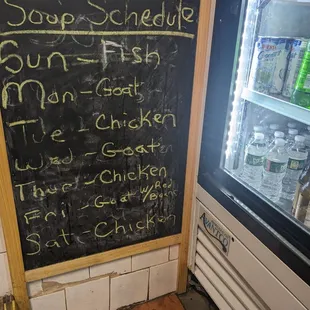 Soup Schedule
Sun - Fish
Mon - Goat
Tue - Chicken
Wed - Goat
Thur - Chicken
Fri - Goat w/Red
Beans
Sat - Chicken